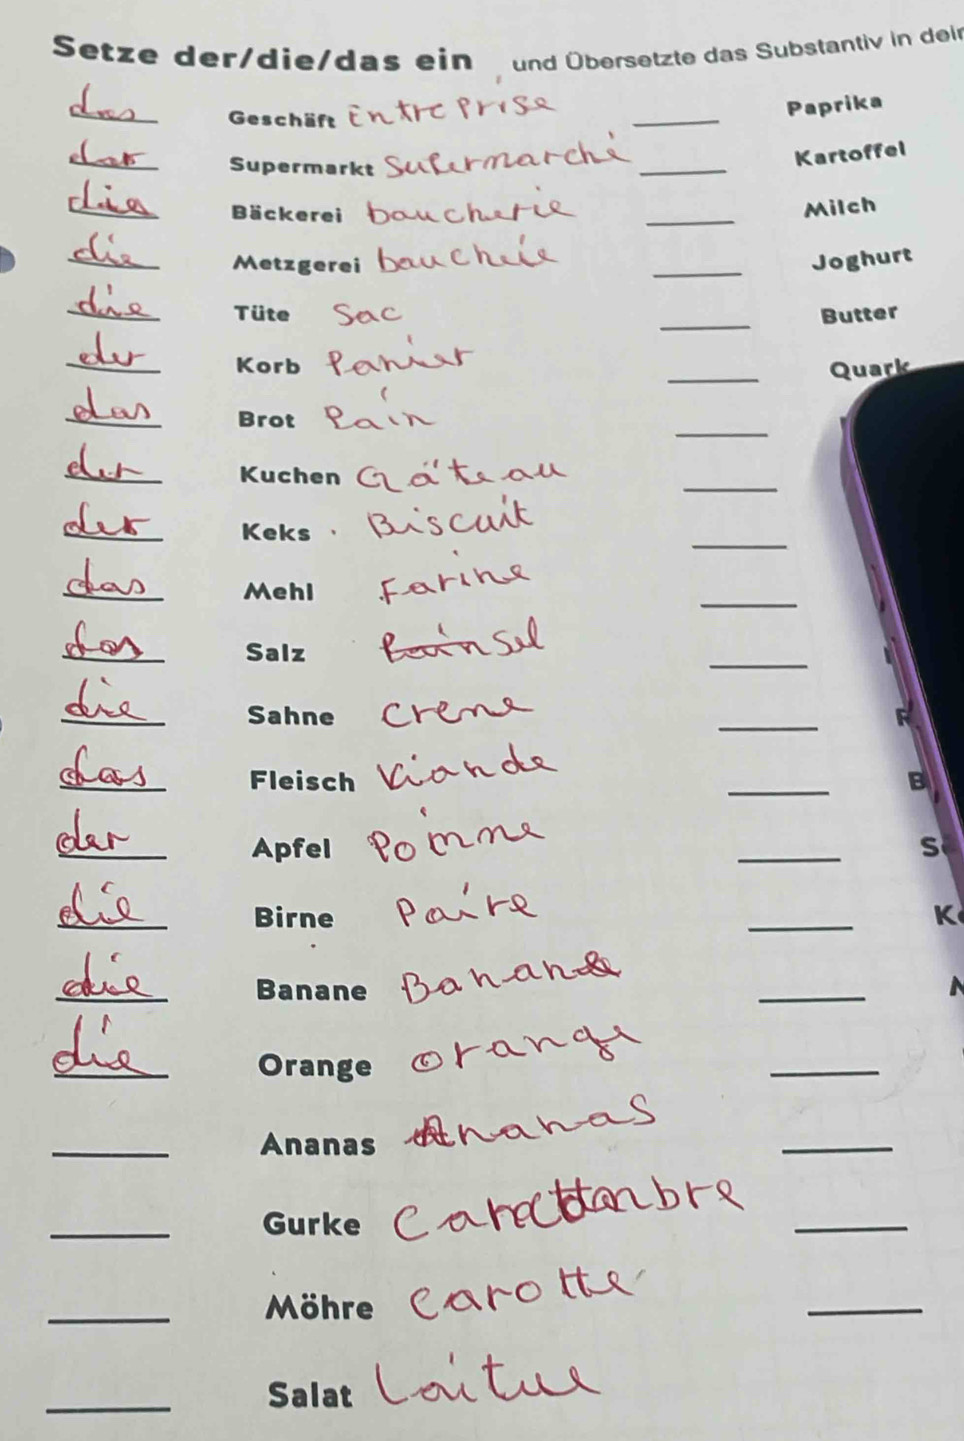 Setze der/die/das ein , und Übersetzte das Substantiv in dein
das Geschäft Entreprise ____ Paprika
der Supermarkt Supermarché ____ Kartoffel
die Bäckerei baucherie ____ Milch
die Metzgerei baucheie ____ Joghurt
die Tüte Sac ____ Butter
der Korb Panier ____ Quark
das Brot Pain ____
der Kuchen Gäteau ____
der Keks Biscuit ____
das Mehl Farine ____
das Salz Sel ____
die Sahne Creme ____
das Fleisch Viande ____
der Apfel Pomme ____
die Birne Paire ____
die Banane Banane ____
die Orange orange ____
____ Ananas Ananas ____
____ Gurke ____
____ Möhre Carotte ____
____ Salat Laitue